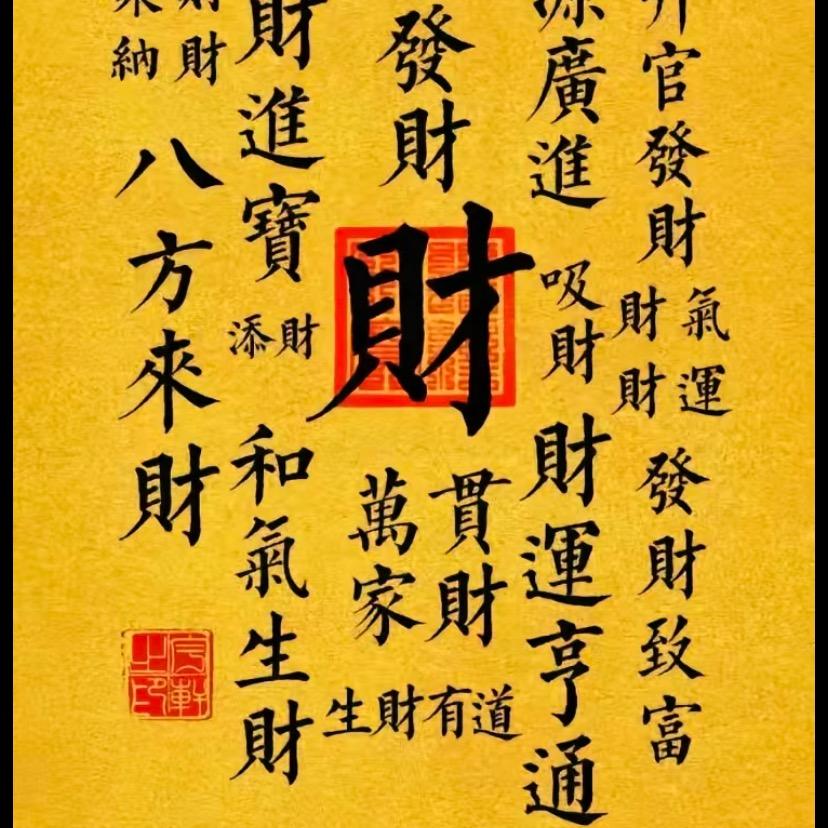 升官發財
氣運
財財
發財致富
源廣進
吸財
財運亨通
發財
財
貫財
萬家
生財有道
財進寶
添財
和氣生財
財財
納
八方來財